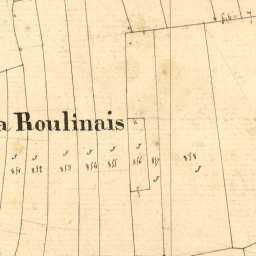 a Roulinais
s s s s s s s s
851 852 853 854 855 856 857 858